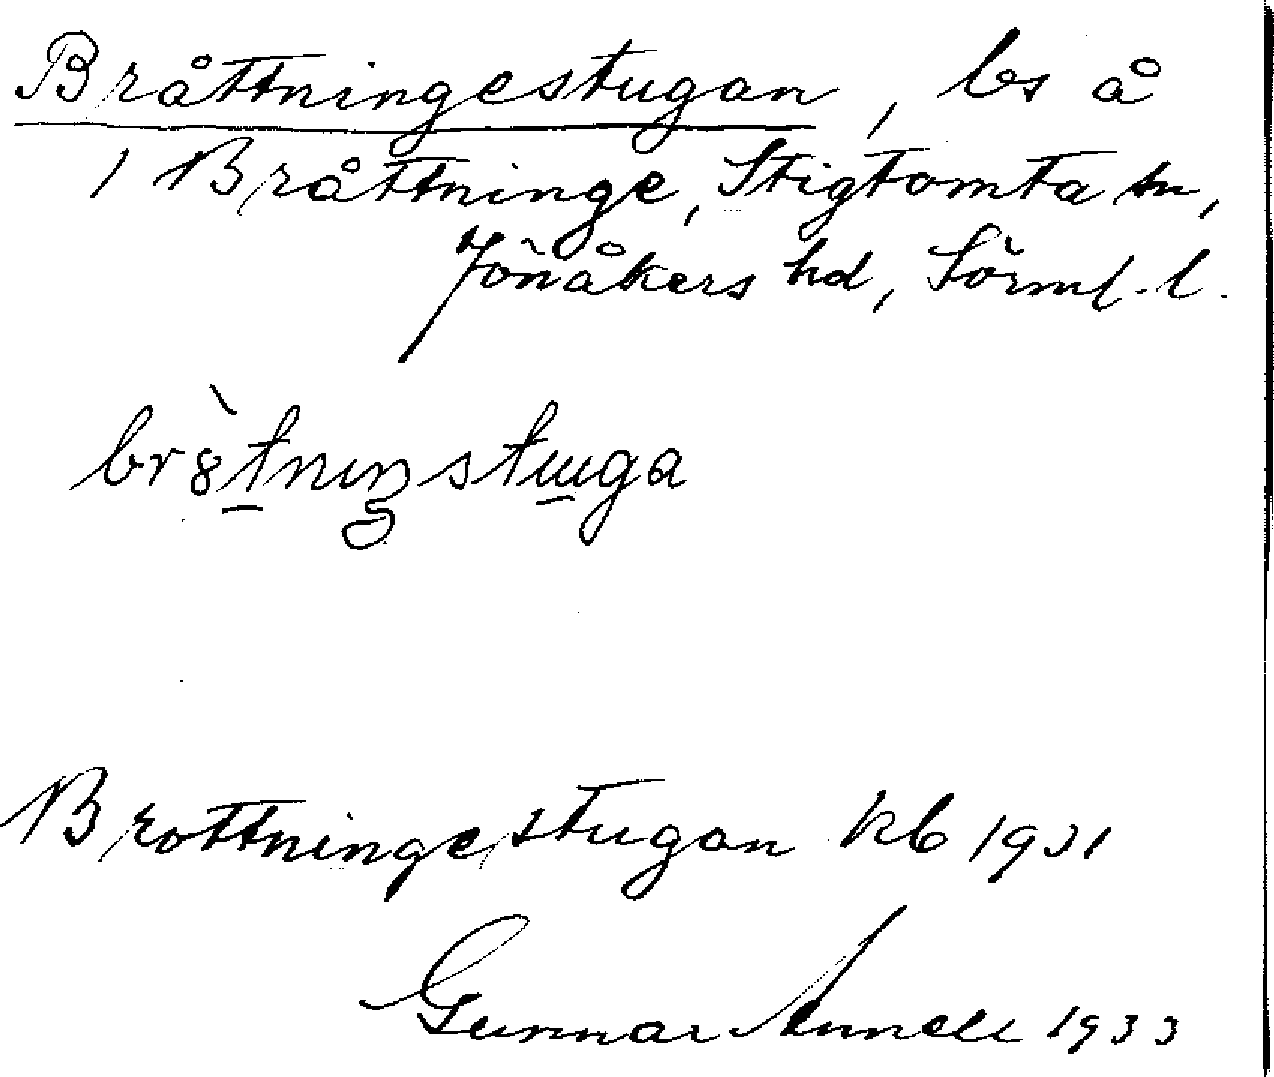 Bråttningestugan, bs å
1 Bråttninge, Stigtomta sn,
Jönåkers hd, Sörml. l.
Brottningestugan kb 1931
Gunnar Annell 1933